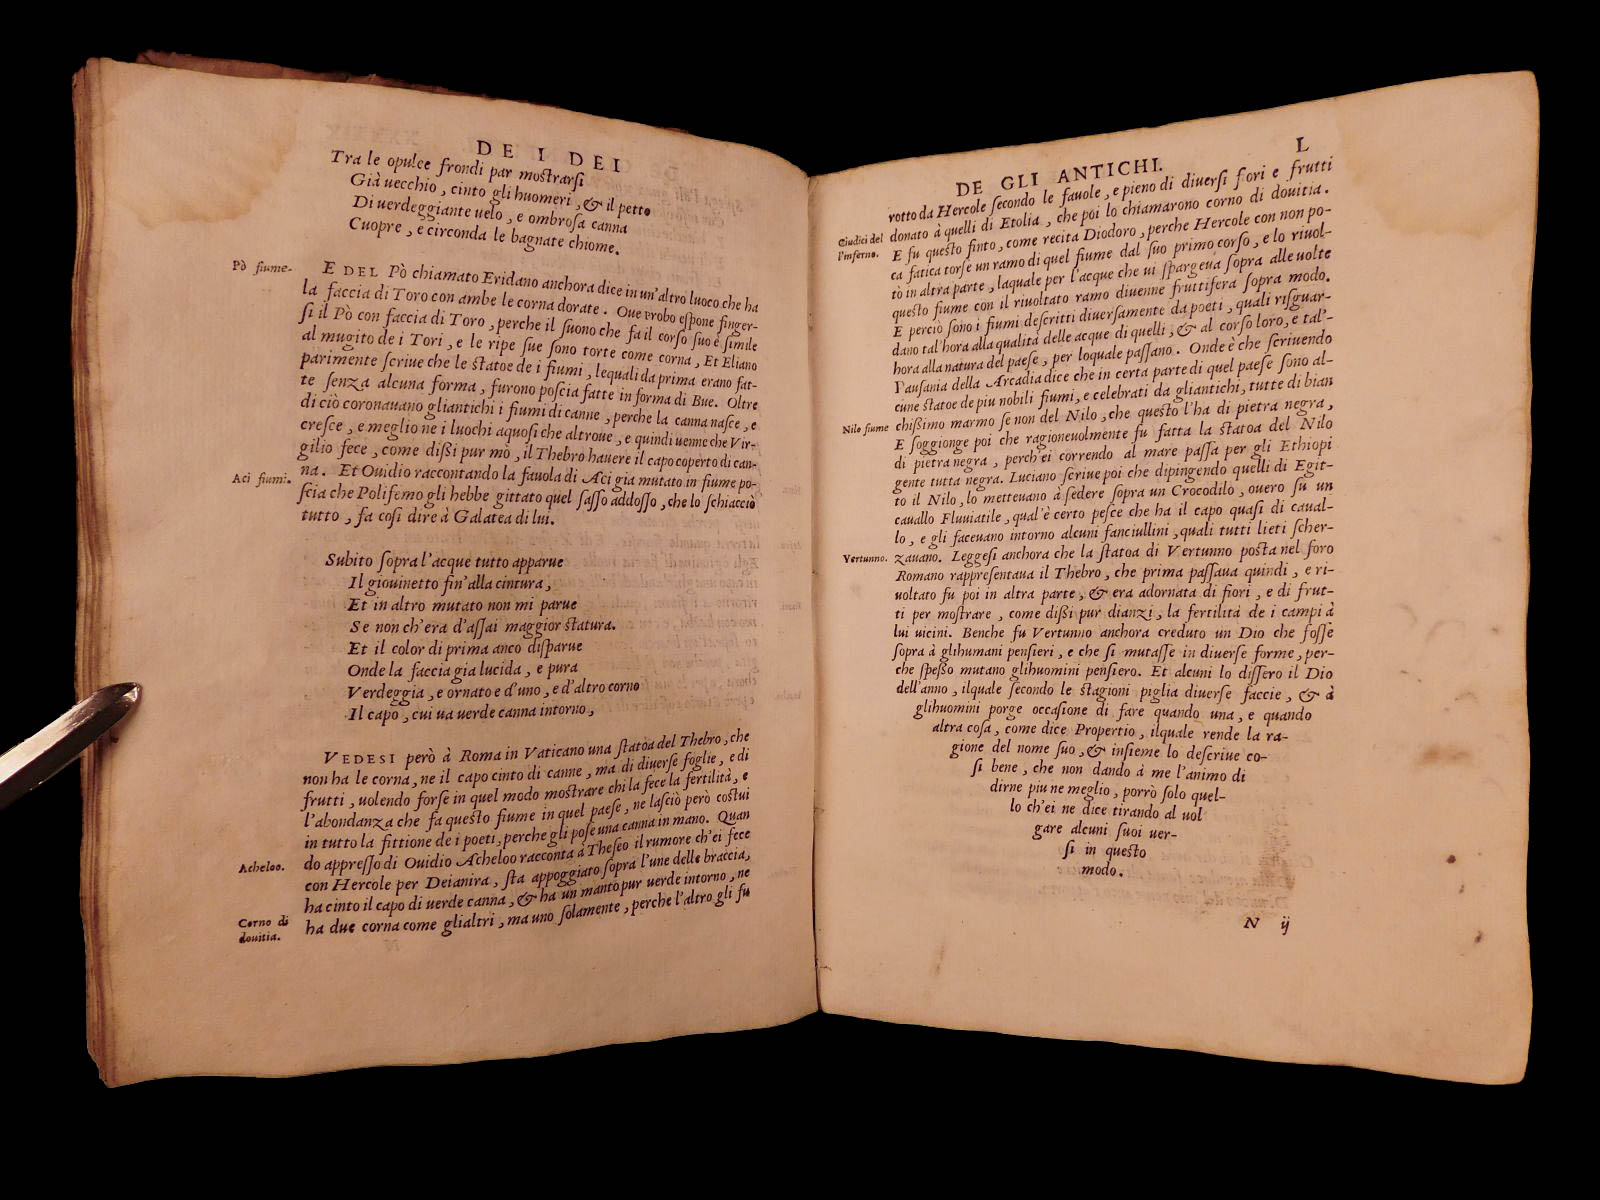 DE I DEI
Tra le opulce frondi par mostrarsi
Già uecchio, cinto gli huomeri, & il petto
Di uerdeggiante uelo, e ombrosa canna
Cuopre, e circonda le bagnate chiome.
Pò fiume.
E DEL Pò chiamato Eridano anchora dice in un'altro luoco che ha
la faccia di Toro con ambe le corna dorate. Oue Probo espone finger-
si il Pò con faccia di Toro, perche il suono che fa il corso suo è simile
al mugito de i Tori, e le ripe sue sono torte come corna, Et Eliano
parimente scriue che le statoe de i fiumi, lequali da prima erano fat-
te senza alcuna forma, furono poscia fatte in forma di Bue. Oltre
di ciò coronauano gliantichi i fiumi di canne, perche la canna nasce, e
cresce, e meglio ne i luochi aquosi che altroue, e quindi uenne che Vir-
gilio fece, come dißi pur mò, il Thebro hauere il capo coperto di can-
na. Et Ouidio raccontando la fauola di Aci gia mutato in fiume po-
Aci fiumi.
scia che Polifemo gli hebbe gittato quel sasso addosso, che lo schiacciò
tutto, fa cosi dire à Galatea di lui.
Subito sopra l'acque tutto apparue
Il giouinetto fin'alla cintura,
Et in altro mutato non mi parue
Se non ch'era d'assai maggior statura.
Et il color di prima anco disparue
Onde la faccia gia lucida, e pura
Verdeggia, e ornato e d'uno, e d'altro corno
Il capo, cui ua uerde canna intorno,
VEDESI però à Roma in Vaticano una statoa del Thebro, che
non ha le corna, ne il capo cinto di canne, ma di diuerse foglie, e di
frutti, uolendo forse in quel modo mostrare chi la fece la fertilità, e
l'abondanza che fa questo fiume in quel paese, ne lasciò però costui
in tutto la fittione de i poeti, perche gli pose una canna in mano. Quan
Acheloo.
do appresso di Ouidio Acheloo racconta à Theseo il rumore ch'ei fece
con Hercole per Deianira, sta appoggiato sopra l'une delle braccia,
ha cinto il capo di uerde canna, & ha un manto pur uerde intorno, ne
Corno di
douitia.
ha due corna come glialtri, ma uno solamente, perche l'altro gli fu
DE GLI ANTICHI.
L
rotto da Hercole secondo le fauole, e pieno di diuersi fiori e frutti
donato à quelli di Etolia, che poi lo chiamarono corno di douitia.
Giudici del
l'inferno.
E fu questo finto, come recita Diodoro, perche Hercole con non po-
ca fatica torse un ramo di quel fiume dal suo primo corso, e lo riuol-
tò in altra parte, laquale per l'acque che ui spargeua sopra alle uolte
questo fiume con il riuoltato ramo diuenne fruttifera sopra modo.
E perciò sono i fiumi descritti diuersamente da poeti, quali risguar-
dano tal'hora alla qualità delle acque di quelli, & al corso loro, e tal'-
hora alla natura del paese, per loquale passano. Onde è che scriuendo
Pausania della Arcadia dice che in certa parte di quel paese sono al-
cune statoe de piu nobili fiumi, e celebrati da gliantichi, tutte di bian
Nilo fiume
chißimo marmo se non del Nilo, che questo l'ha di pietra negra,
E soggionge poi che ragioneuolmente fu fatta la statoa del Nilo
di pietra negra, perch'ei correndo al mare passa per gli Ethiopi
gente tutta negra. Luciano scriue poi che dipingendo quelli di Egit-
to il Nilo, lo metteuano à sedere sopra un Crocodilo, ouero su un
cauallo Fluuiatile, qual'è certo pesce che ha il capo quasi di caual-
lo, e gli faceuano intorno alcuni fanciullini, quali tutti lieti scher-
Vertunno.
zauano. Leggesi anchora che la statoa di Vertunno posta nel foro
Romano rappresentaua il Thebro, che prima passaua quindi, e ri-
uoltato fu poi in altra parte, & era adornata di fiori, e di frut-
ti per mostrare, come dißi pur dianzi, la fertilità de i campi à
lui uicini. Benche fu Vertunno anchora creduto un Dio che fosse
sopra à glihumani pensieri, e che si mutasse in diuerse forme, per-
che speßo mutano glihuomini pensiero. Et alcuni lo dissero il Dio
dell'anno, ilquale secondo le stagioni piglia diuerse faccie, & à
glihuomini porge occasione di fare quando una, e quando
altra cosa, come dice Propertio, ilquale rende la ra-
gione del nome suo, & insieme lo descriue co-
si bene, che non dando à me l'animo di
dirne piu ne meglio, porrò solo quel-
lo ch'ei ne dice tirando al uol
gare alcuni suoi uer-
si in questo
modo.
N ij